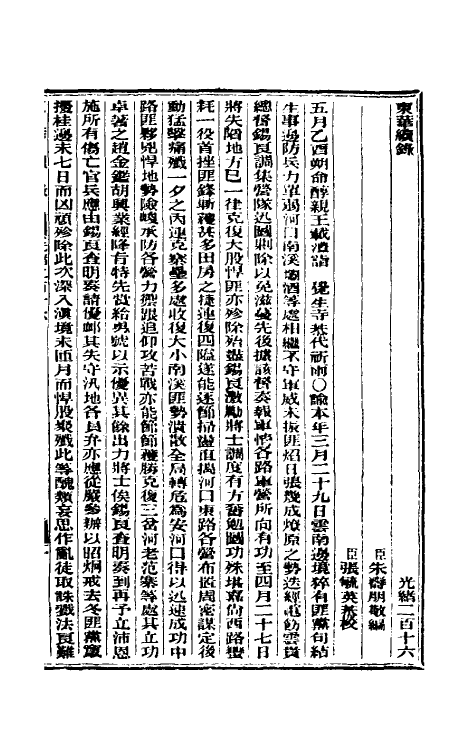 東華續錄
光緒二百十六
臣朱壽朋敬編
臣張毓英恭校
五月乙酉朔命醇親王載灃詣 覺生寺恭代祈雨〇諭本年三月二十九日雲南邊境猝有匪黨勾結
生事邊防兵力單過河口南溪壩洒等處相繼不守軍威未振匪焰日張幾成燎原之勢迭經電飭雲貴
總督錫良調集營隊迅圖剿除以免滋蔓先後據該督奏報軍情各路軍營所向有功至四月二十七日
將失陷地方已一律克復大股悍匪亦殄除殆盡錫良激勵將士調度有方奮勉圖功殊堪嘉尚西路蠻
耗一役首挫匪鋒斬獲甚多田房之捷連復四隘遂能逐節掃盪直搗河口東路各營布置周密謀定後
動猛擊痛殲一夕之內連克寨壘多處收復大小南溪匪勢潰散全局轉危為安河口得以迅速成功中
路匪夥兇悍地勢險峻承防各營力禦跟追仰攻苦戰亦能節節獲勝克復三岔河老范寨等處其立功
卓著之趙金鑑胡興業經降旨特先賞給勇號以示優異其餘出力將士俟錫良查明奏到再予立沛恩
施所有傷亡官兵應由錫良查明奏請優卹其失守汛地各員弁亦應從嚴參辦以昭烱戒去冬匪黨竄
擾桂邊未七日而凶頑殄除此次深入滇境未匝月而悍股聚殲此等醜類妄思作亂徒取誅戮法良難